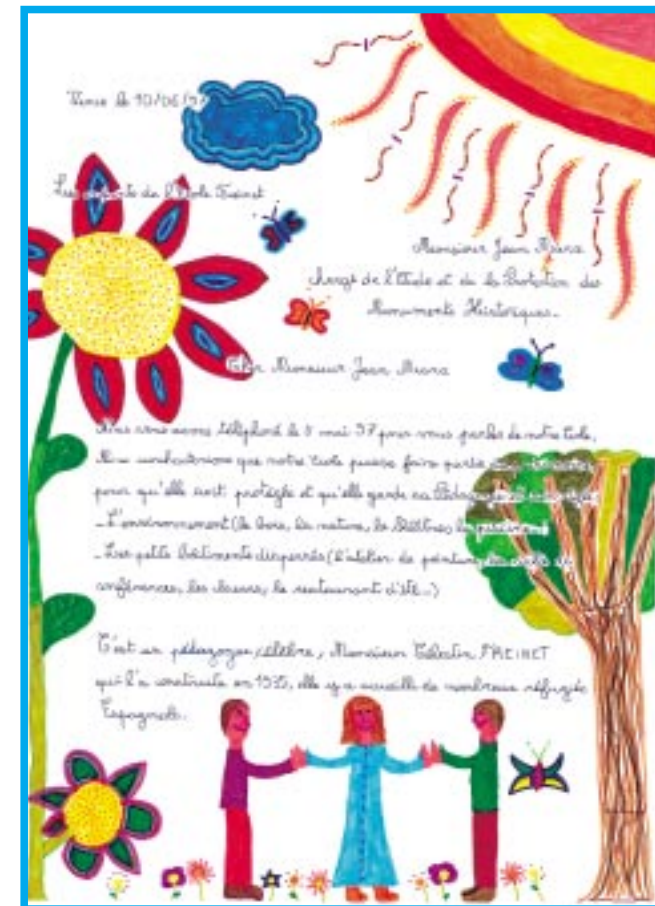 Vence le 10/06/97
Les enfants de l'Ecole Freinet
Monsieur Jean
chargé de l'Etude et de la Protection des
Monuments Historiques.
Cher Monsieur Jean
Nous vous avons téléphoné le 5 mai 97 pour vous parler de notre Ecole,
Nous souhaiterions que notre Ecole puisse faire partie
pour qu'elle soit protégée et qu'elle garde sa Pédagogie et
- L'environnement (le bois, la nature, le théâtre, la piscine...)
- Les petits bâtiments dispersés (l'atelier de peinture, la salle de
conférences, les classes, le restaurant d'été...)
C'est un pédagogue célèbre, Monsieur Célestin FREINET
qui l'a construite en 1935, elle y a accueilli de nombreux réfugiés
Espagnols.